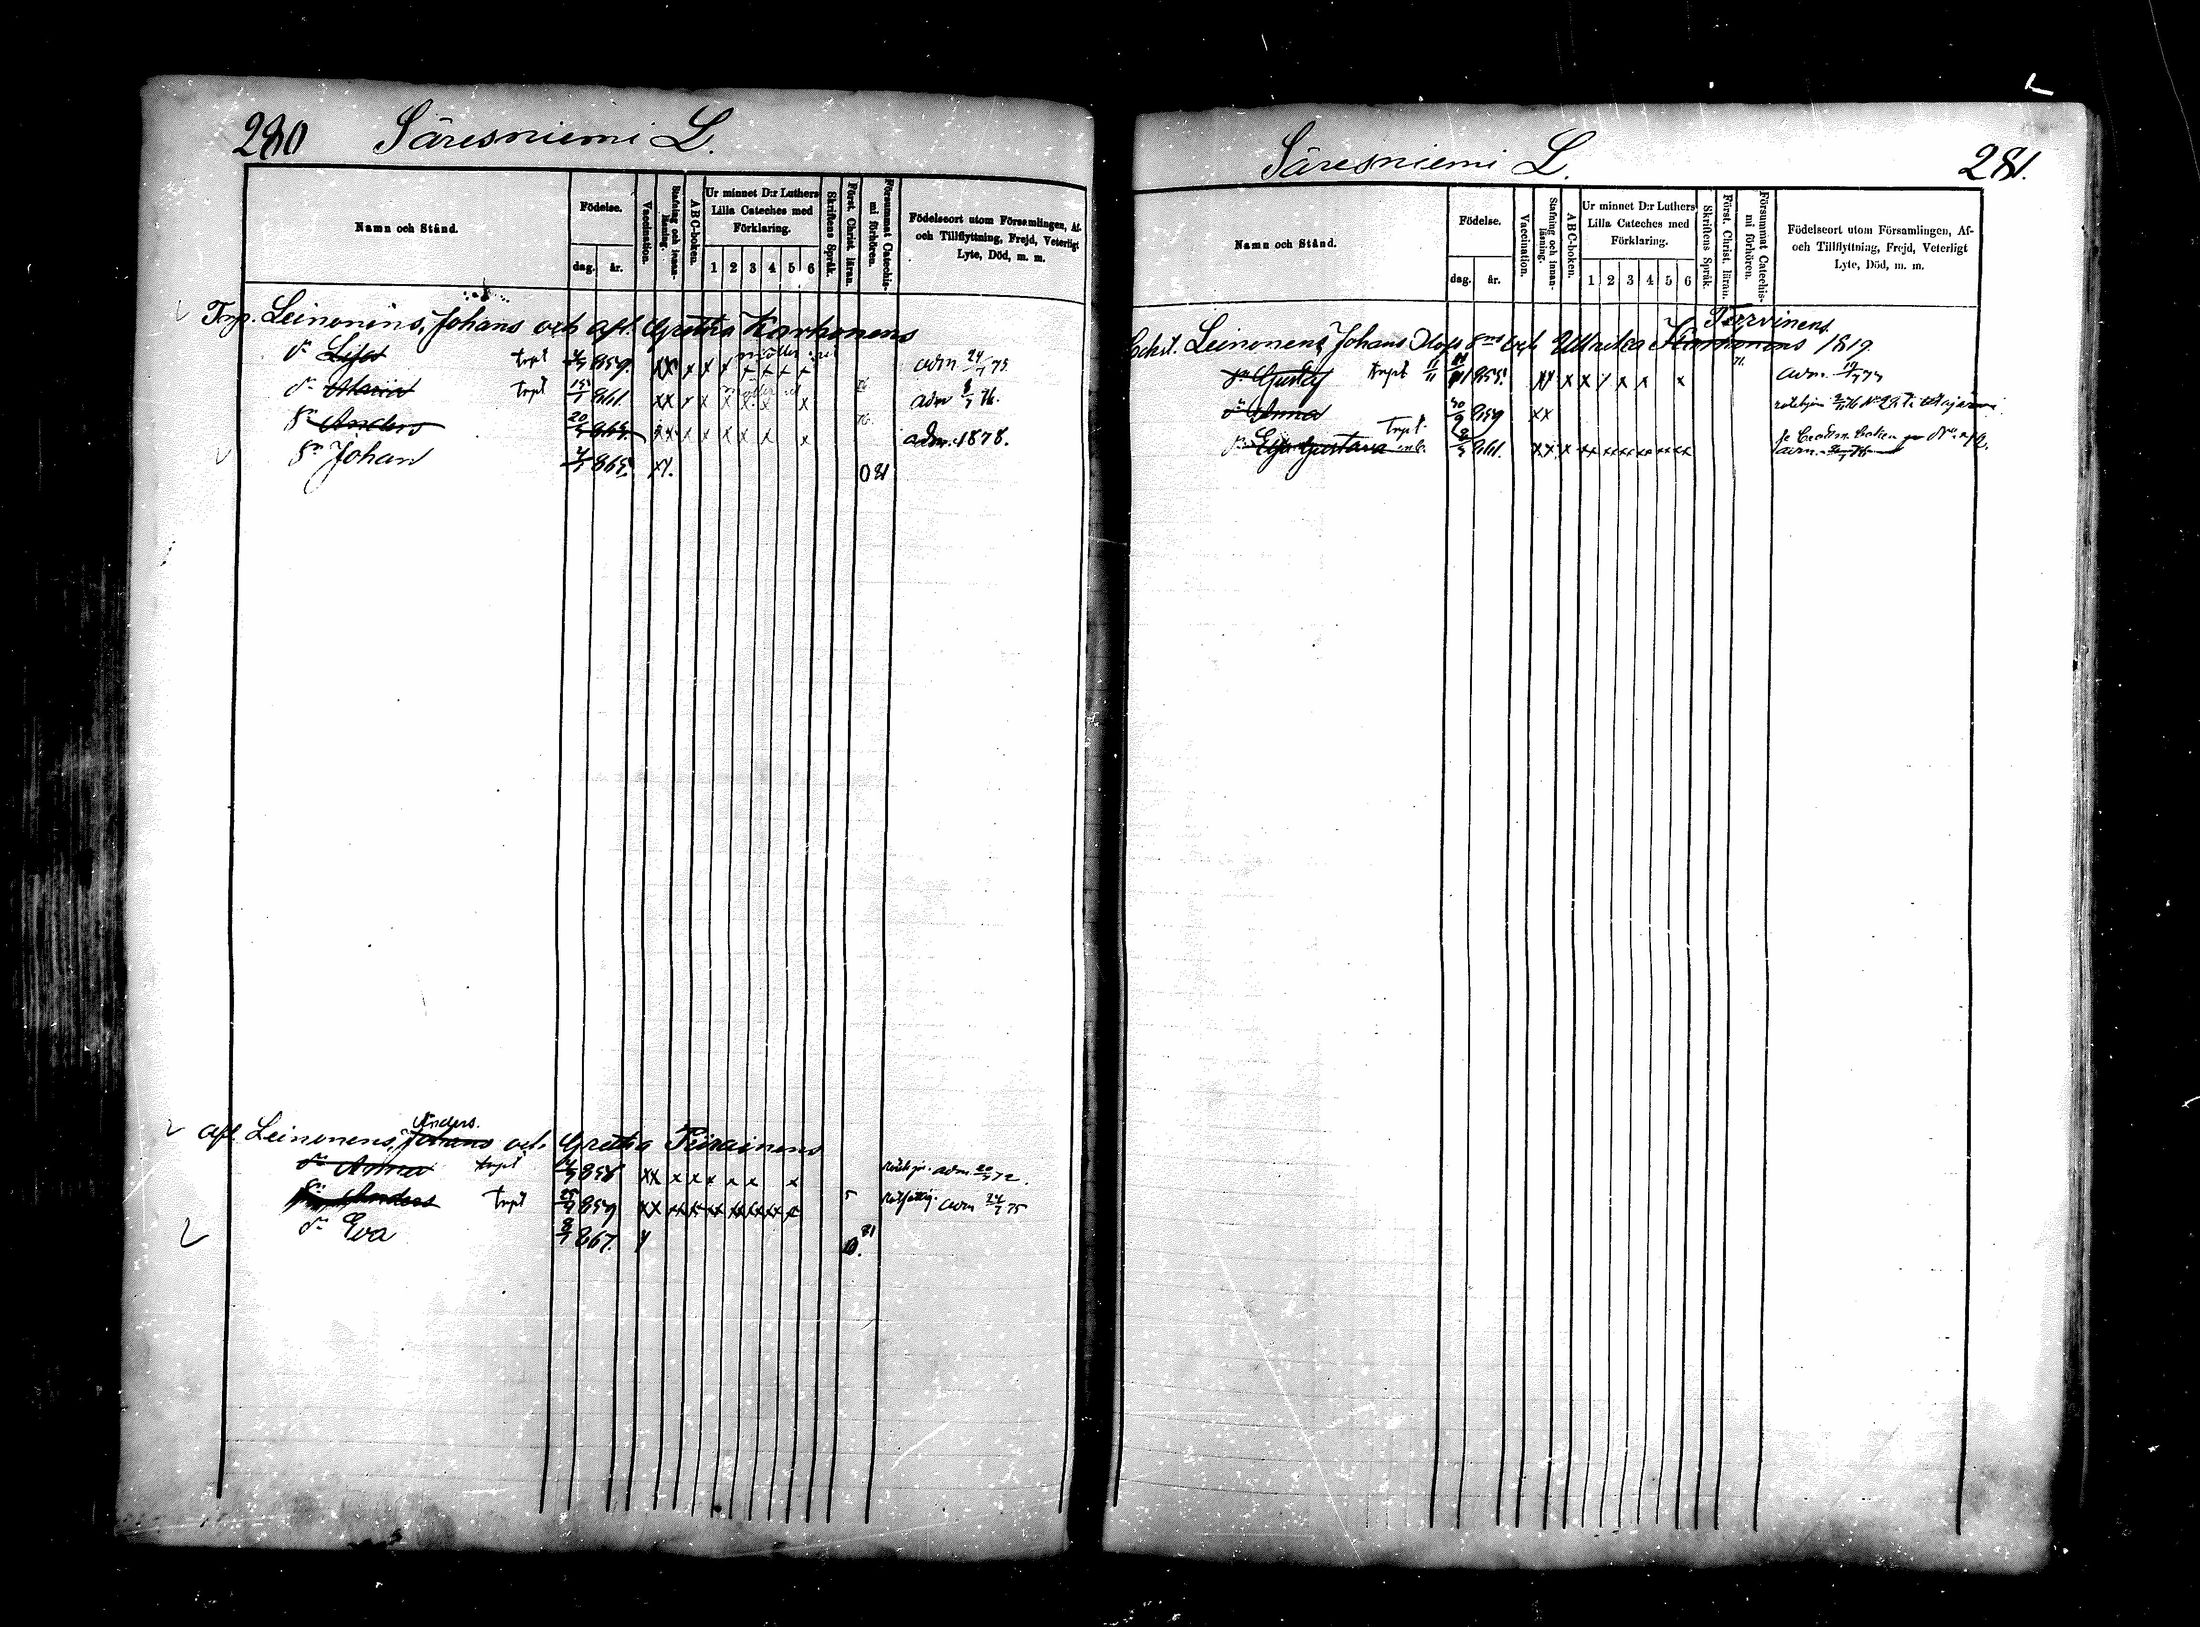 280 Säresniemi L.
Namn och Stånd.
Födelse.
dag. år.
Vaccination.
Stafning och innan-läsning.
ABC-boken.
Ur minnet D:r Luthers
Lilla Cateches med
Förklaring.
1 2 3 4 5 6
Skriftens Språk.
Först. Christ. läran.
Försummat Catechis-
mi förhören.
Födelseort utom Församlingen, Af-
och Tillflyttning, Frejd, Veterligt
Lyte, Död, m. m.
Trp. Leinonens, Johans och afl. Gretha Korhonens
dr Lisa trpt 859. xx x x x x x x x adm 24/7 75.
dr Maria trpt 15/1 861. xx x x x x x x adm 8/7 76.
sn Anders 20/ 863. xx x x x x x x 76. adm. 1878.
sn Johan 865. xx. 0 81
Anders.
afl Leinonens, Johans och Gretha Piirainens
dr Anna trpt 858 xx x x x x x x adm. 20/7 72.
sn Anders trpt 25/ 859 xx xx x xx xx xx xx x 5 adm 24/7 75
dr Eva 8/7 867. x 0. 81
Säresniemi L. 281.
Namn och Stånd.
Födelse.
dag. år.
Vaccination.
Stafning och innan-läsning.
ABC-boken.
Ur minnet D:r Luthers
Lilla Cateches med
Förklaring.
1 2 3 4 5 6
Skriftens Språk.
Först. Christ. läran.
Försummat Catechis-
mi förhören.
Födelseort utom Församlingen, Af-
och Tillflyttning, Frejd, Veterligt
Lyte, Död, m. m.
Tervinens
Leinonens Johans Olofs sns och Ulrika 1819.
sn Gustaf trpt 11/11 1855. xx x x x x x x 71. adm.
dr Anna 30/9 859 xx
dr Eva Gustava trpt 861. xx x xx xx xx xx xx adm.